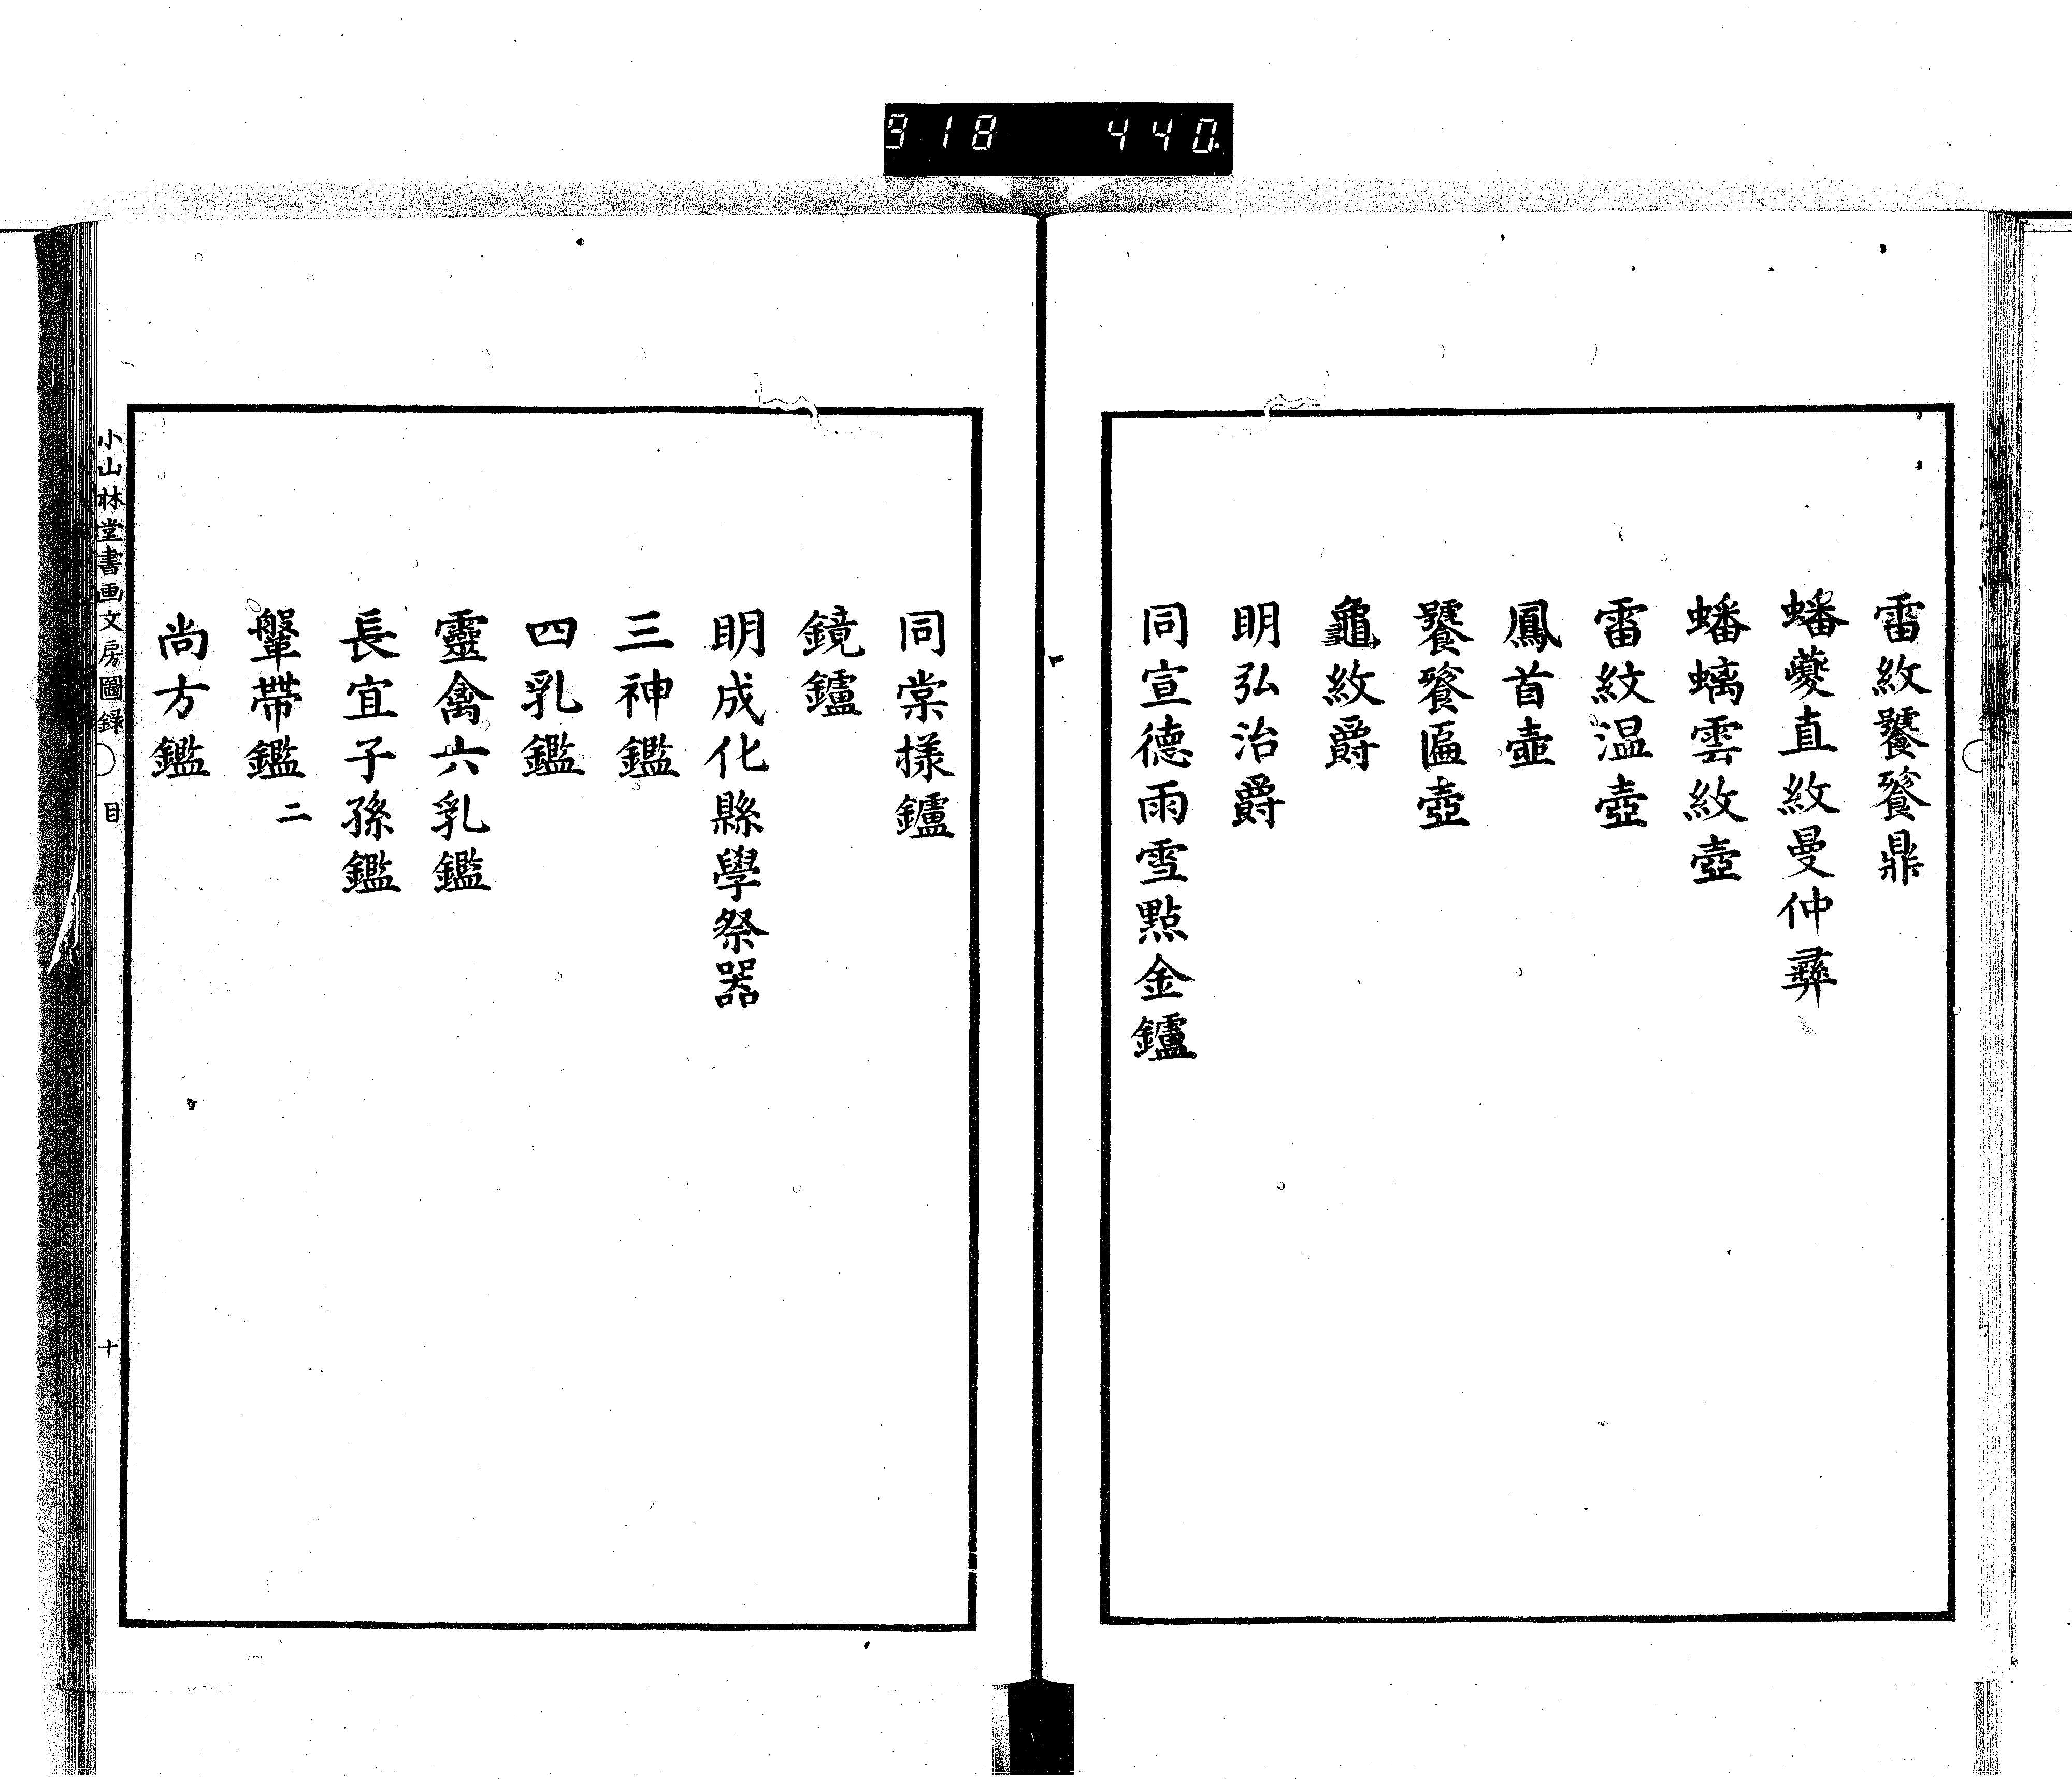 918 440.
雷紋饕餮鼎
蟠夔直紋曼仲彝
蟠螭雲紋壺
雷紋温壺
鳳首壷
饕餮匾壺
龜紋爵
明弘治爵
同宣德雨雪點金鑪
同棠樣鑪
鏡鑪
明成化縣學祭器
三神鑑
四乳鑑
靈禽六乳鑑
長宜子孫鑑
鞶帶鑑 二
尚方鑑
小山林堂書画文房圖録 目 十